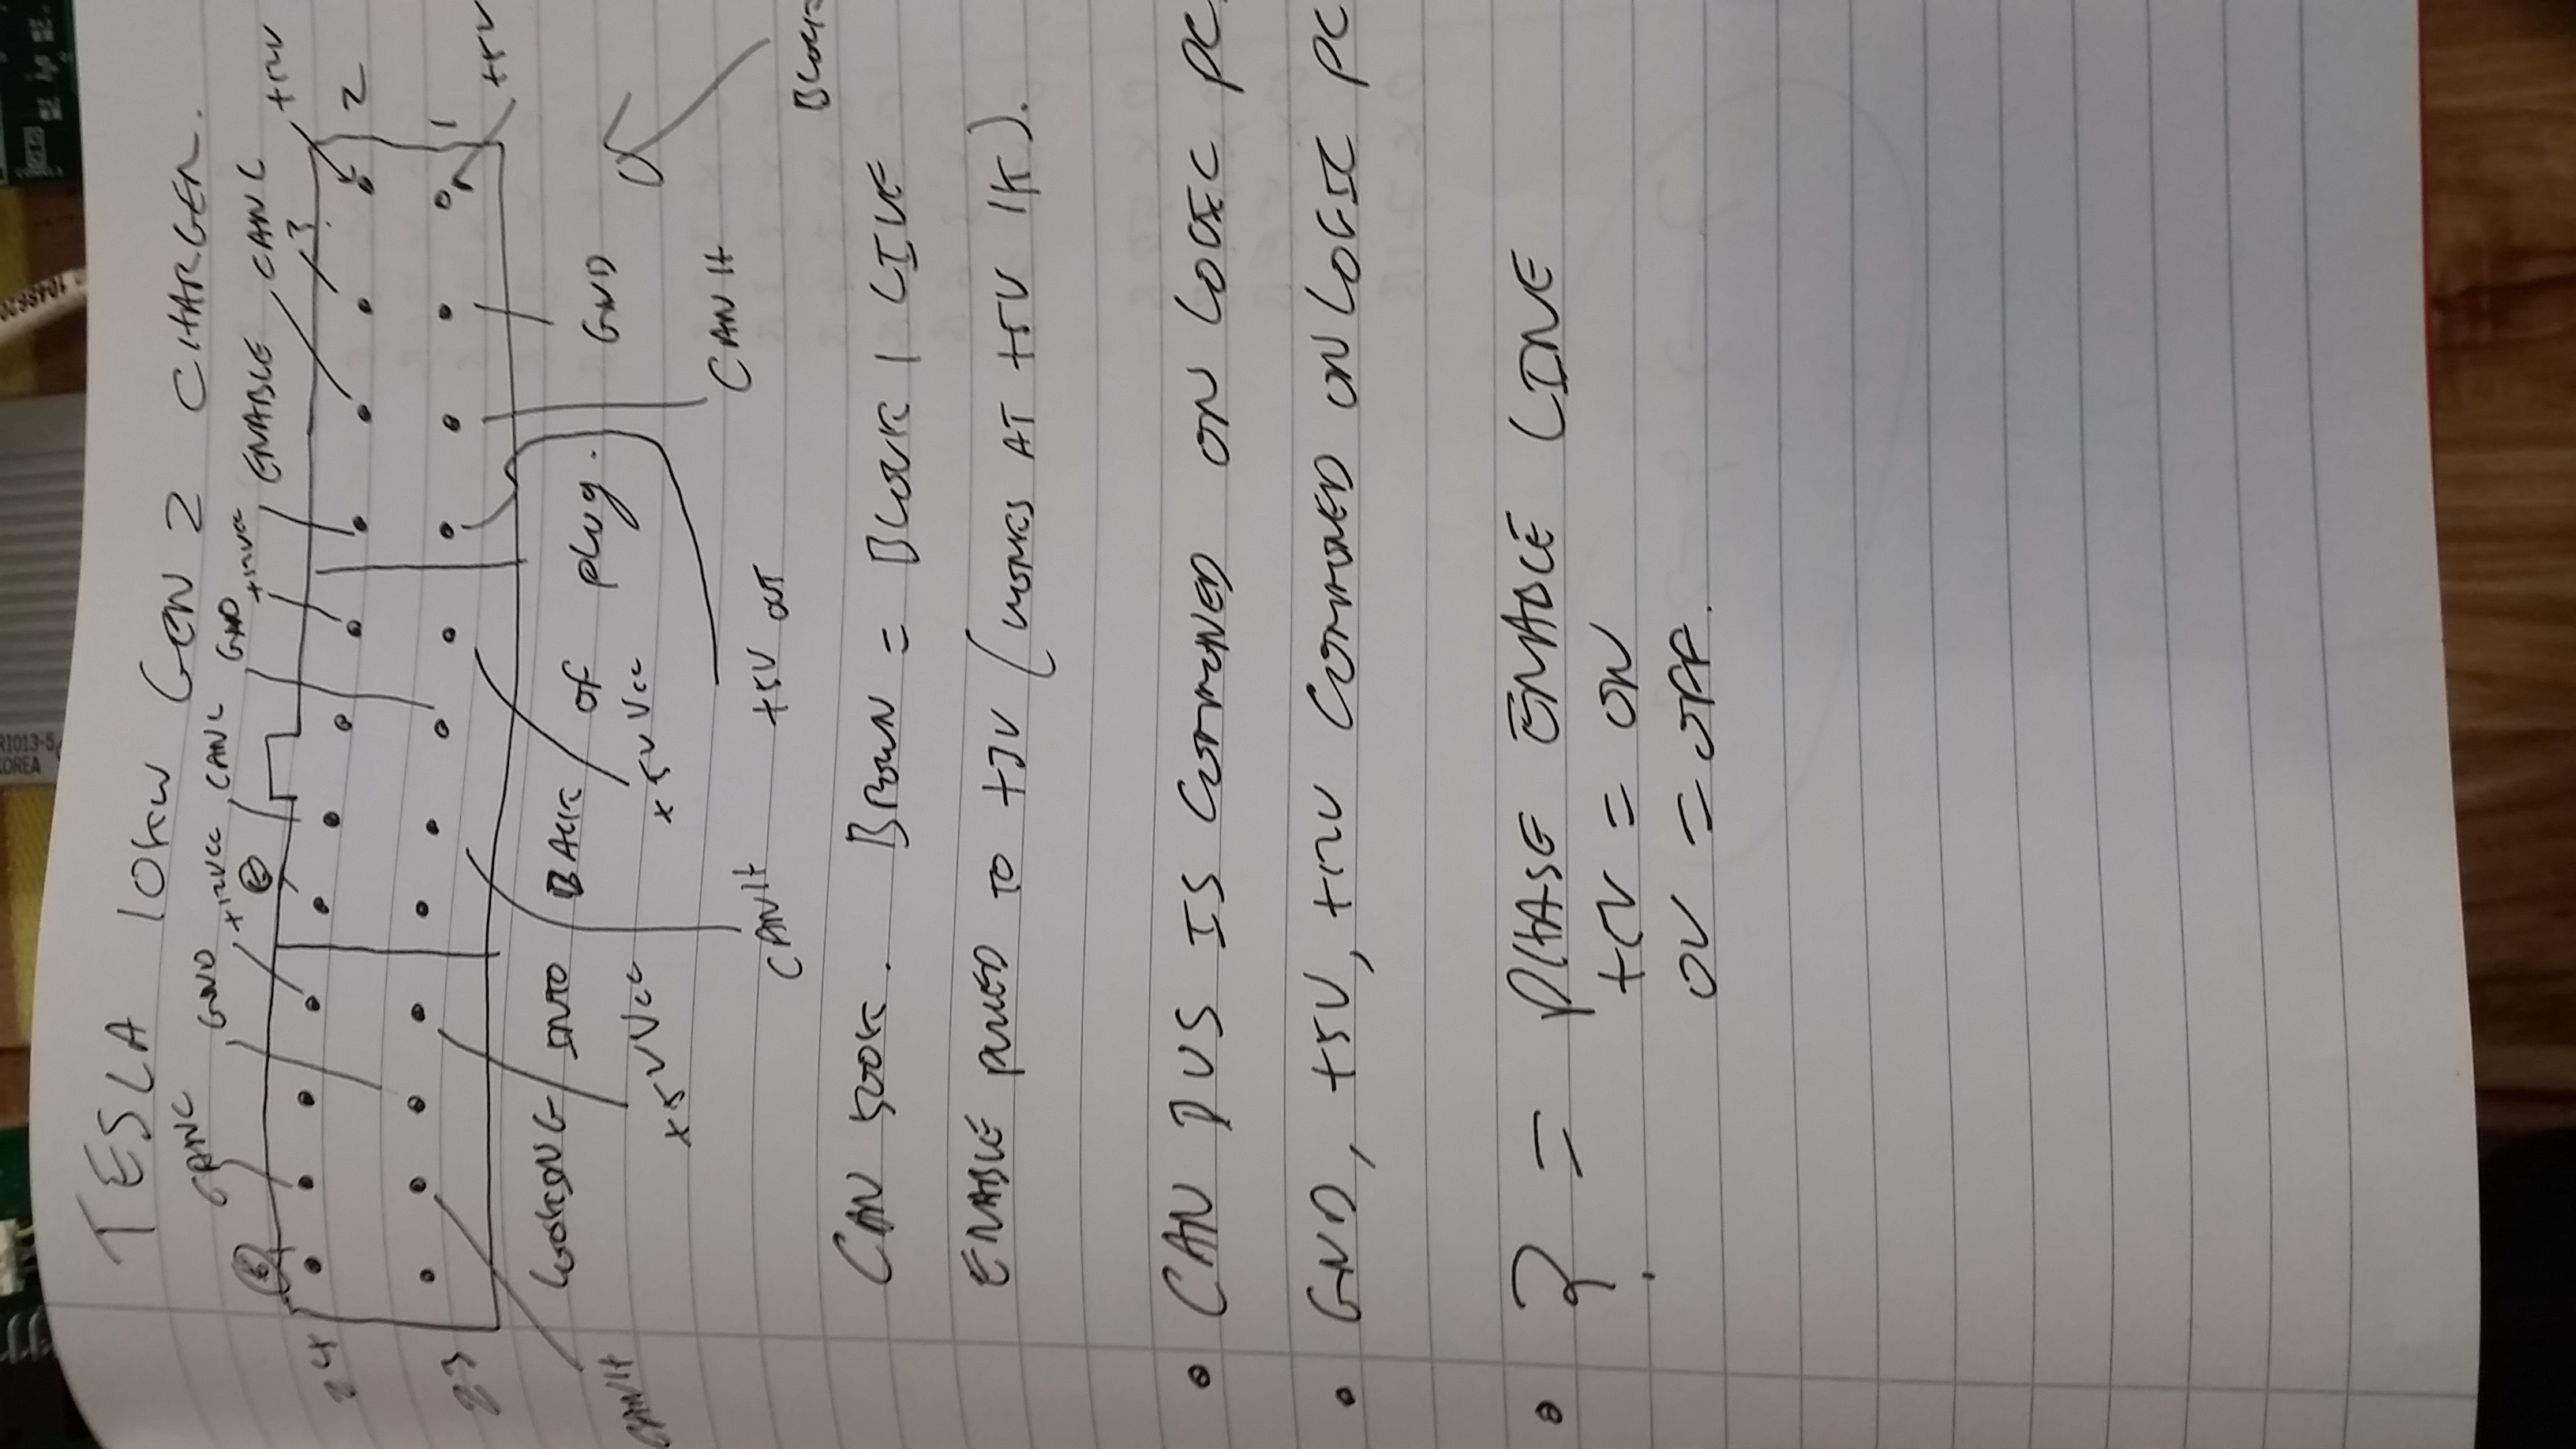 R1013-5
KOREA
TESLA 10KW GEN 2 CHARGER.
CANL GND +12VCC CANL GND +12VCC ENABLE CANL ? +12V
24 2
23 1
+5V
LOOKING INTO BACK OF PLUG. GND
CANH +5V VCC +5V VCC
CANH +5V OUT CANH
BLOCK
CAN 500K. BROWN = BLOCK 1 LIVE
ENABLE PULLED TO +3V (WORKS AT +5V 1K).
• CAN BUS IS COMMONED ON LOGIC PC
• GND, +5V, +12V COMMONED ON LOGIC PC
• ? = PHASE ENABLE LINE
+5V = ON
0V = OFF.